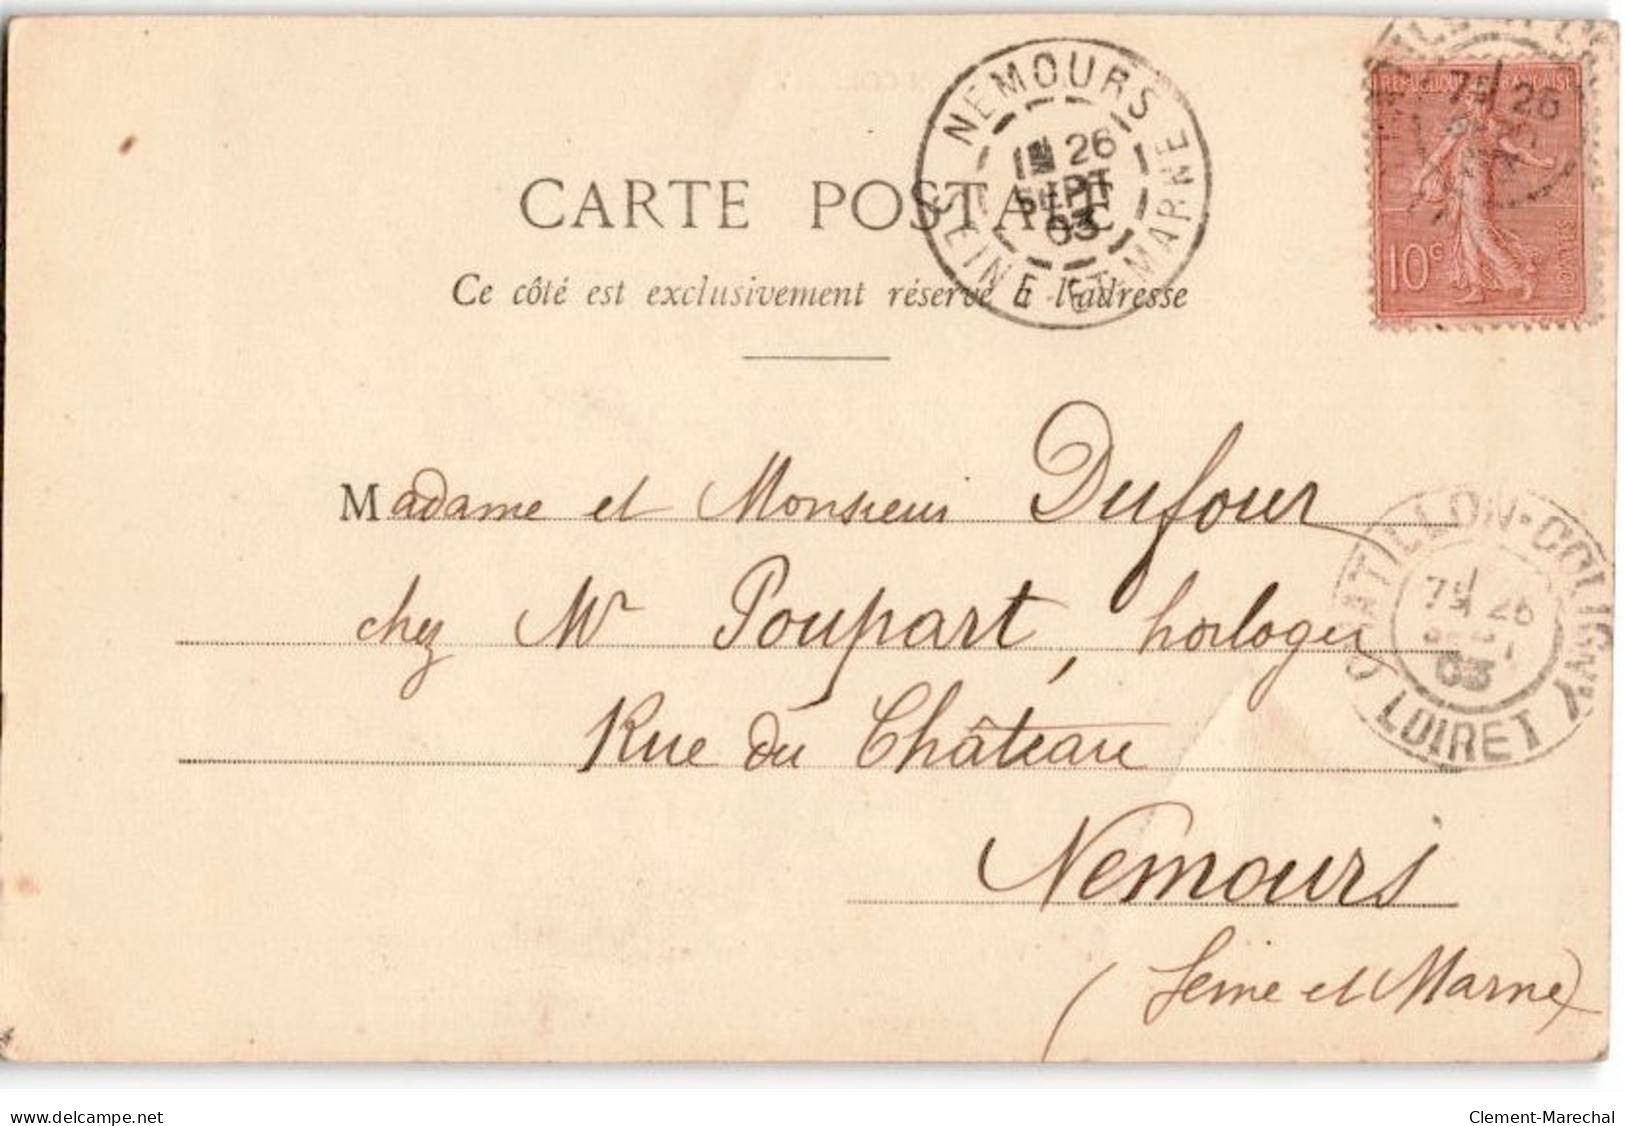 CARTE POSTALE
Ce côté est exclusivement réservé à l'adresse
NEMOURS
26
SEPT
03
SEINE ET MARNE
REPUBLIQUE FRANÇAISE
10c
Madame et Monsieur Dufour
chez Mr Poupart, horloger
Rue du Château
Nemours
(Seine et Marne)
CHATILLON-COLIGNY
7 26
03
LOIRET
www.delcampe.net
Clement-Marechal